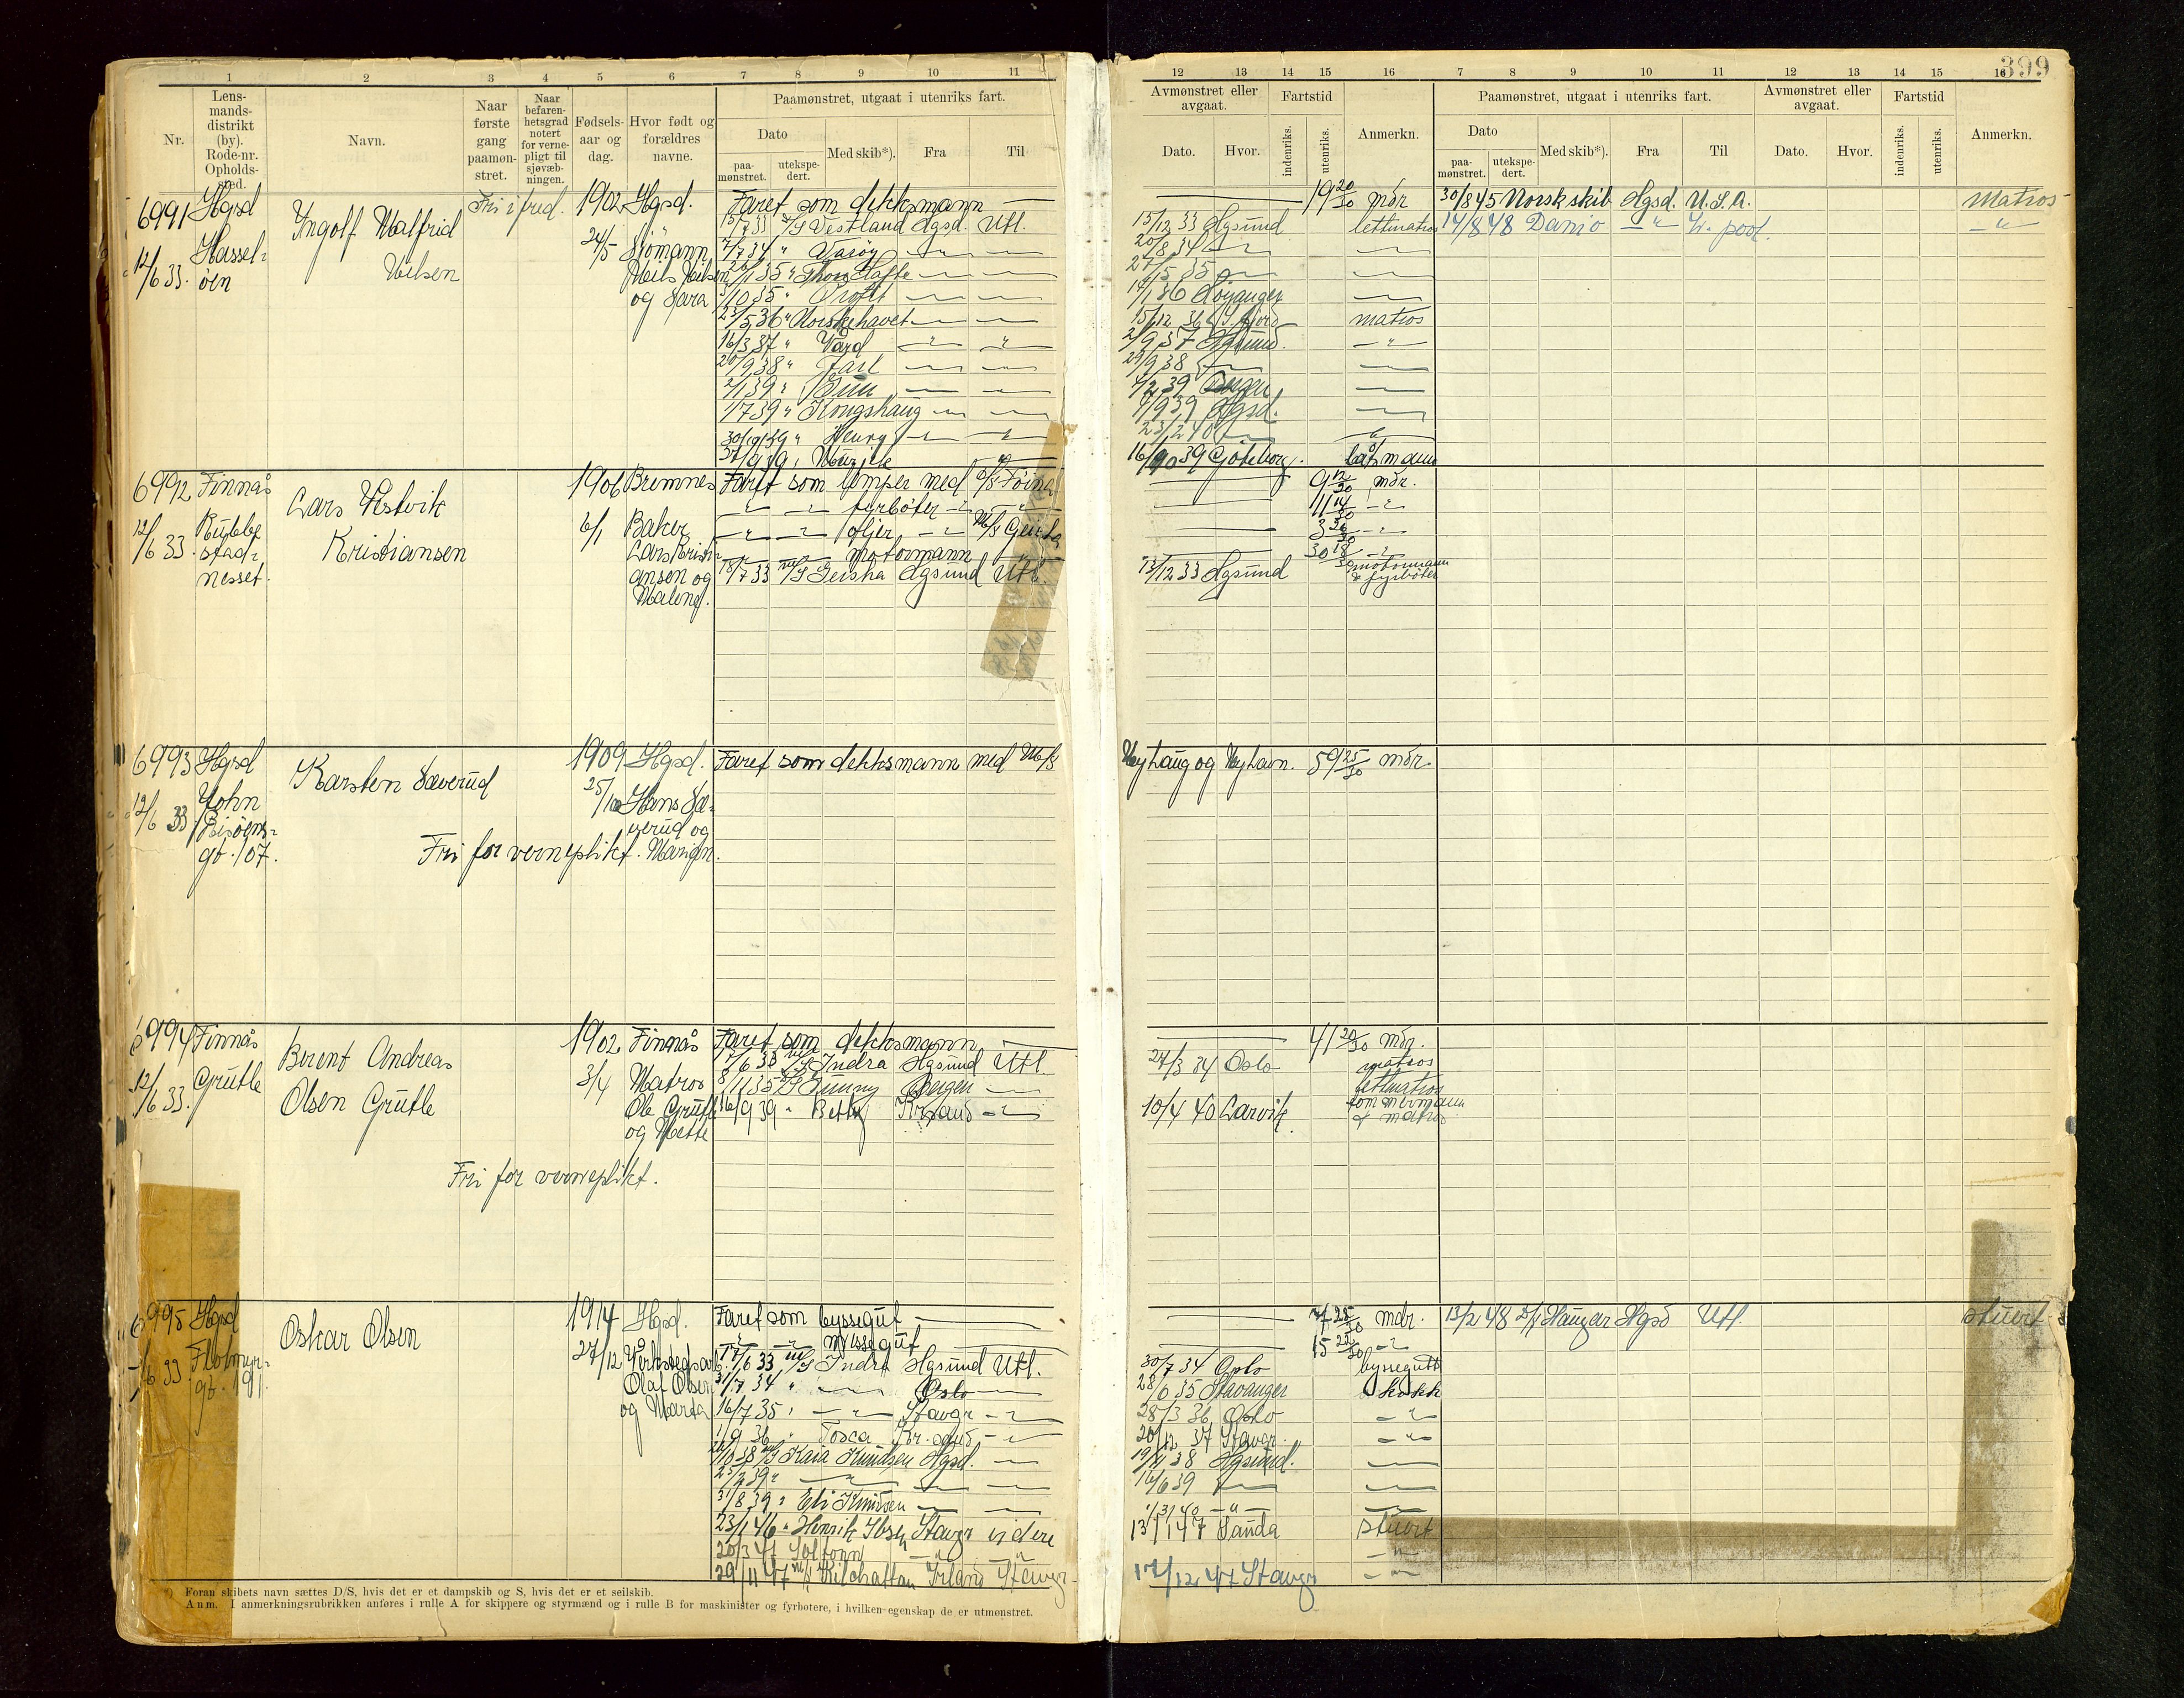 399
1 2 3 4 5 6 7 8 9 10 11
12 13 14 15 16 7 8 9 10 11 12 13 14 15 16
Nr.
Lens-
mands-
distrikt
(by).
Rode-nr.
Opholds-
sted.
Navn.
Naar
første
gang
paamøn-
stret.
Naar
befaren-
hetsgrad
notert
for verne-
pligt til
sjøvæb-
ningen.
Fødsels-
aar og
dag.
Hvor født og
forældres
navne.
Paamønstret, utgaat i utenriks fart.
Dato
paa-
mønstret.
utekspe-
dert.
Med skib*).
Fra
Til
Avmønstret eller
avgaat.
Dato.
Hvor.
Fartstid
indenriks.
utenriks.
Anmerkn.
Paamønstret, utgaat i utenriks fart.
Dato
paa-
mønstret.
utekspe-
dert.
Med skib*).
Fra
Til
Avmønstret eller
avgaat.
Dato.
Hvor.
Fartstid
indenriks.
utenriks.
Anmerkn.
6991
12/6 33.
Hgsd
Hassel-
öen
Yngolf Malfrid
Nilsen
Fri i fred.
1902
24/5
Hgsd.
Sjömann
Nils Nilsen
og Sara
Faret som dekksmann
Vestland Hgsd. Utl.
16/3 37 " Vard
20/9 38 " Jarl
1/7 39 " Kongshaug
30/10 39 " Henry
19 20/30 mdr
15/12 33 Hgsund lettmatros
20/8 34
14/1 36 Höyanger
15/12 36 matros
2/9 37 Hgsund
29/9 38
4/2 39 Bergen
4/9 39 Hgsd.
23/2 40
16/10 39 Göteborg. båtsmann
30/8 45 Norsk skib Hgsd. U.S.A. Matros
14/8 48 Danio -"- L. pool. -"-
6992
12/6 33.
Finnås
Rubbe-
stad-
nesset.
Lars Vestvik
Kristiansen
1906
6/1
Bremnes
Baker
Lars Kristi-
ansen og
Malene.
Faret som lemper med
fyrböter
oljer
motormann
18/7 33 M/S Geisha Hgsund Utl.
9 12/30 mdr.
11 14/30 -"-
30 18/30 -"-
13/12 33 Hgsund motormann
& fyrböter
6993
12/6 33
Hgsd
John
gt. 107.
Karsten Sæverud
Fri for verneplikt.
1909
25/10
Hgsd.
Hans Sæ-
verud og
Marian.
Faret som dekksmann med M/S
Nyhaug og Nyhavn. 59 25/30 mdr.
6994
12/6 33.
Finnås
Grutle
Berent Andreas
Olsen Grutle
Fri for verneplikt.
1902
3/4
Finnås
Matros
Ole Grutle
og Mette
Faret som dekksmann
17/6 33 M/S Indra Hgsund Utl
8/11 35 Jenny Bergen
16/9 39 " Betty Krsand -"-
41 20/30 mdr.
27/3 34 Oslo matros
lettmatros
10/4 40 Larvik tömmermann
& matros
6995
Hgsd
Flotmyr-
gt. 191.
Oskar Olsen
1914
27/12
Hgsd.
Verkstedsarb.
Olaf Olsen
og Marta
Faret som byssegut
messegut
17/6 33 M/S Indra Hgsund Utl.
31/7 34 " Oslo
16/7 35 " Stavgr -"-
1/9 36 " Tosca Kr.sand -"-
M/S Kaia Knudsen Hgsd.
25/2 39 "
31/8 39 " Eli Knudsen
23/1 46 " Henrik Ibsen Stavgr videre
20/3 47 Soltonn
29/11 47 M/S Kilchattan Irland Stavgr
7 25/30 mdr.
15 22/30 -"-
30/7 34 Oslo byssegutt
28/6 35 Stavanger kokk
28/3 36 Oslo -"-
20/12 37 Stavgr. -"-
19/11 38 Hgsund.
16/6 39
1/3 40 -"-
13/1 47 Sauda stuert
-"-
17/12 47 Stavgr -"-
13/2 48 D/S Haugar Hgsd Utl. stuert
*) Foran skibets navn sættes D/S, hvis det er et dampskib og S, hvis det er et seilskib.
Anm. I anmerkningsrubrikken anføres i rulle A for skippere og styrmænd og i rulle B for maskinister og fyrbøtere, i hvilken egenskap de er utmønstret.